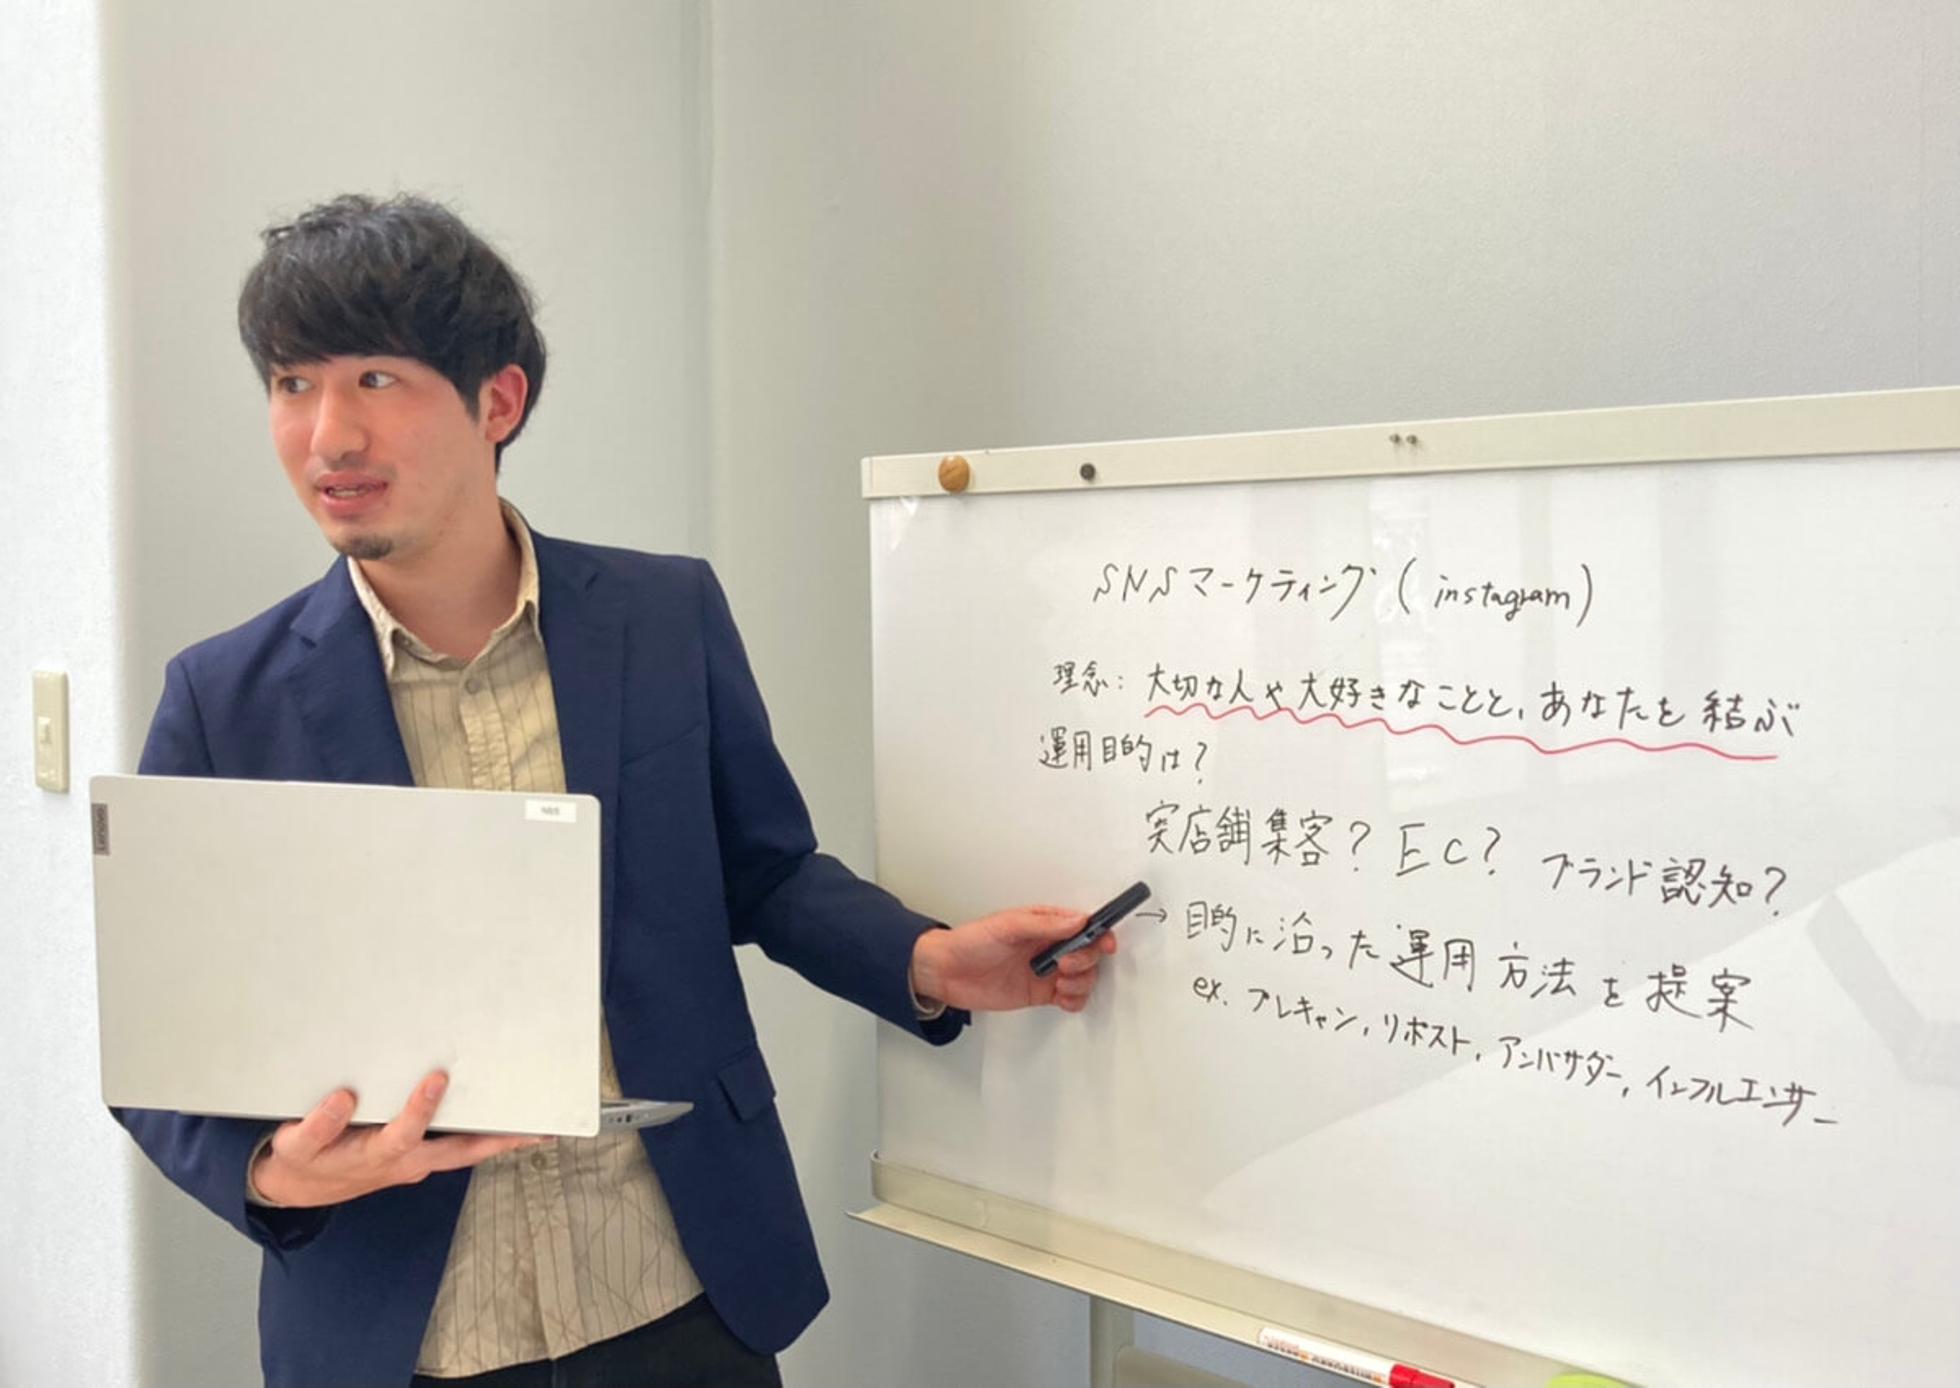 SNSマーケティング（instagram）
理念：大切な人や大好きなことと、あなたを結ぶ
運用目的は？
実店舗集客？ EC？ ブランド認知？
→ 目的に沿った運用方法を提案
ex. プレキャン，リポスト，アンバサダー，インフルエンサー
Lenovo